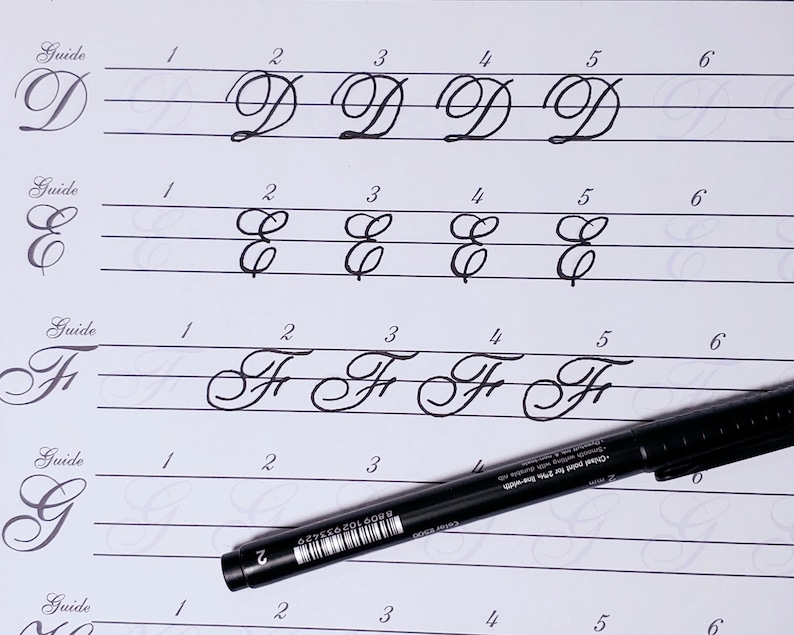 Guide 1 2 3 4 5 6
D D D D D D D
Guide 1 2 3 4 5 6
E E E E E E E
Guide 1 2 3 4 5 6
F F F F F F F
Guide 1 2 3 6
G G G G G
•Chisel point for 2™ line-width
•Smooth writing with durable nib
•Dyestuff ink, & non-toxic
2 mm
Color #500
8809102933429
2
Guide 1 2 3 4 5 6